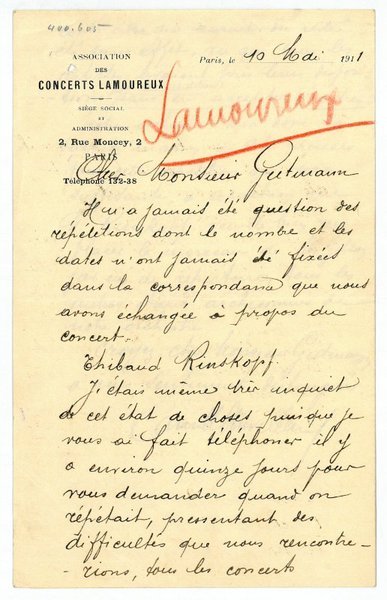 400.605
ASSOCIATION
DES
CONCERTS LAMOUREUX
SIÈGE SOCIAL
ET
ADMINISTRATION
2, Rue Moncey, 2
PARIS
Téléphone 132-38
Paris, le 10 Mai 1911
Lamoureux
Cher Monsieur Gutmann
Il n'a jamais été question des
répétitions dont le nombre et les
dates n'ont jamais été fixées
dans la correspondance que nous
avons échangée à propos du
concert.
Thibaud Kinskopf.
J'étais même très inquiet
de cet état de choses puisque je
vous ai fait téléphoner il y
a environ quinze jours pour
vous demander quand on
répétait, pressentant des
difficultés que nous rencontre-
rions, tous les concerts